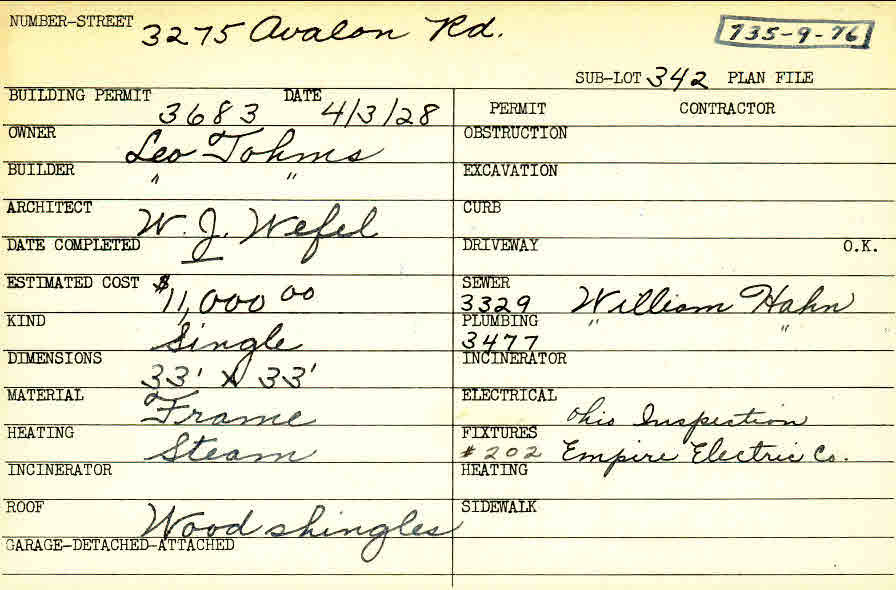 NUMBER-STREET 3275 Avalon Rd. 735-9-76
SUB-LOT 342 PLAN FILE
BUILDING PERMIT 3683 DATE 4/3/28
OWNER Leo Tohms
BUILDER " "
ARCHITECT W. J. Wefel
DATE COMPLETED
ESTIMATED COST $11,000 00
KIND Single
DIMENSIONS 33' X 33'
MATERIAL Frame
HEATING Steam
INCINERATOR
ROOF Wood shingles
GARAGE-DETACHED-ATTACHED
PERMIT CONTRACTOR
OBSTRUCTION
EXCAVATION
CURB
DRIVEWAY O.K.
SEWER
3329 William Hahn
PLUMBING " "
3477
INCINERATOR
ELECTRICAL Ohio Inspection
FIXTURES
#202 Empire Electric Co.
HEATING
SIDEWALK